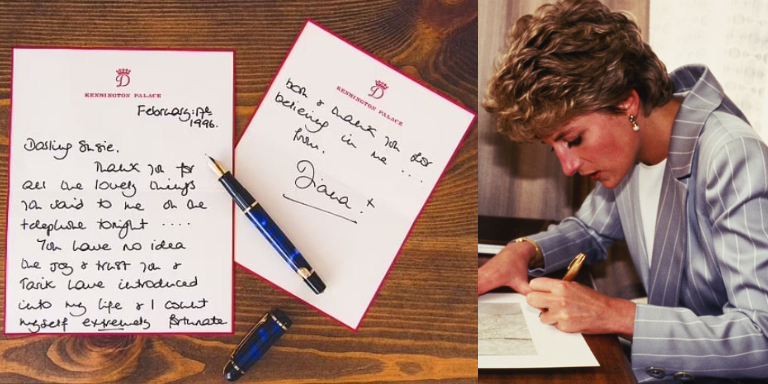 D
KENSINGTON PALACE
February: 17th
1996.
Darling Susie.
Thank you for
all the lovely things
you said to me on the
telephone tonight ....
You have no idea
the joy & trust you &
Tarik have introduced
into my life & I count
myself extremely fortunate
D
KENSINGTON PALACE
both & thank you for
believing in me ...
from.
Diana. x